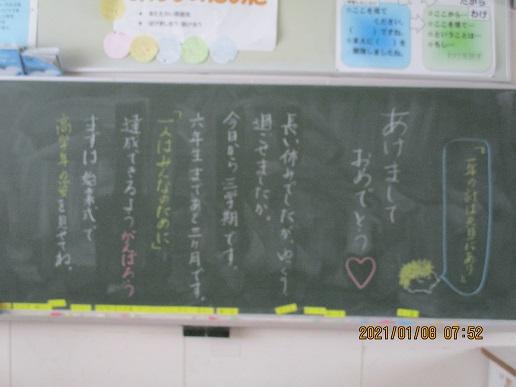 「一年の計は元旦にあり」
あけまして
おめでとう♡
長い休みでしたが、ゆっくり
過ごせましたか。
今日から三学期です。
六年生まであと三ヶ月です。
「一人はみんなのために」
達成できるようがんばろう
まずは始業式で
高学年の姿を見せてね。
ここを見て
ください。
ここから…
ここを見て…
ということは…
もし…
2021/01/08 07:52